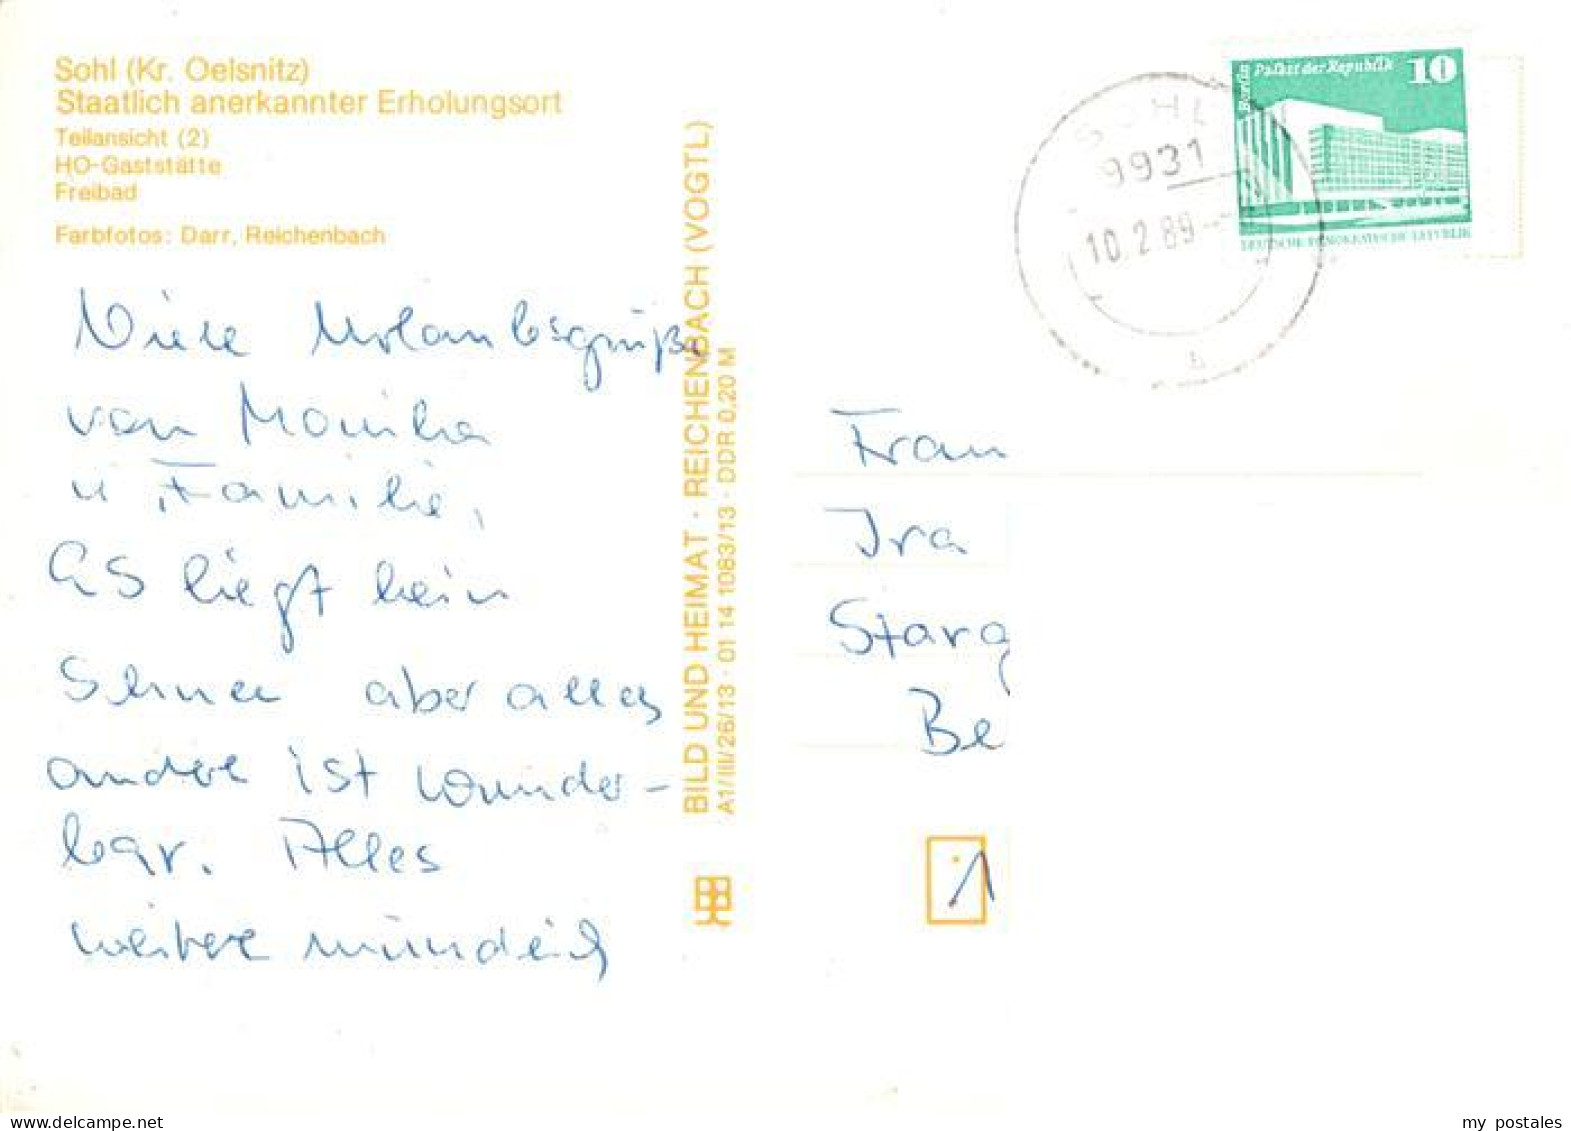 Sohl (Kr. Oelsnitz)
Staatlich anerkannter Erholungsort
Teilansicht (2)
HO-Gaststätte
Freibad
Farbfotos: Darr, Reichenbach
Viele Urlaubsgrüße
von Monika
u Familie,
es liegt kein
Schnee aber alles
andere ist wunder-
bar. Alles
weitere mündlich
BILD UND HEIMAT · REICHENBACH (VOGTL)
A1/III/26/13 · 01 14 1083/13 · DDR 0,20 M
SOHL
9931
10.2.89
b
Berlin Palast der Republik 10
DEUTSCHE DEMOKRATISCHE REPUBLIK
Frau
Ira
Starg
Be
1
my postales